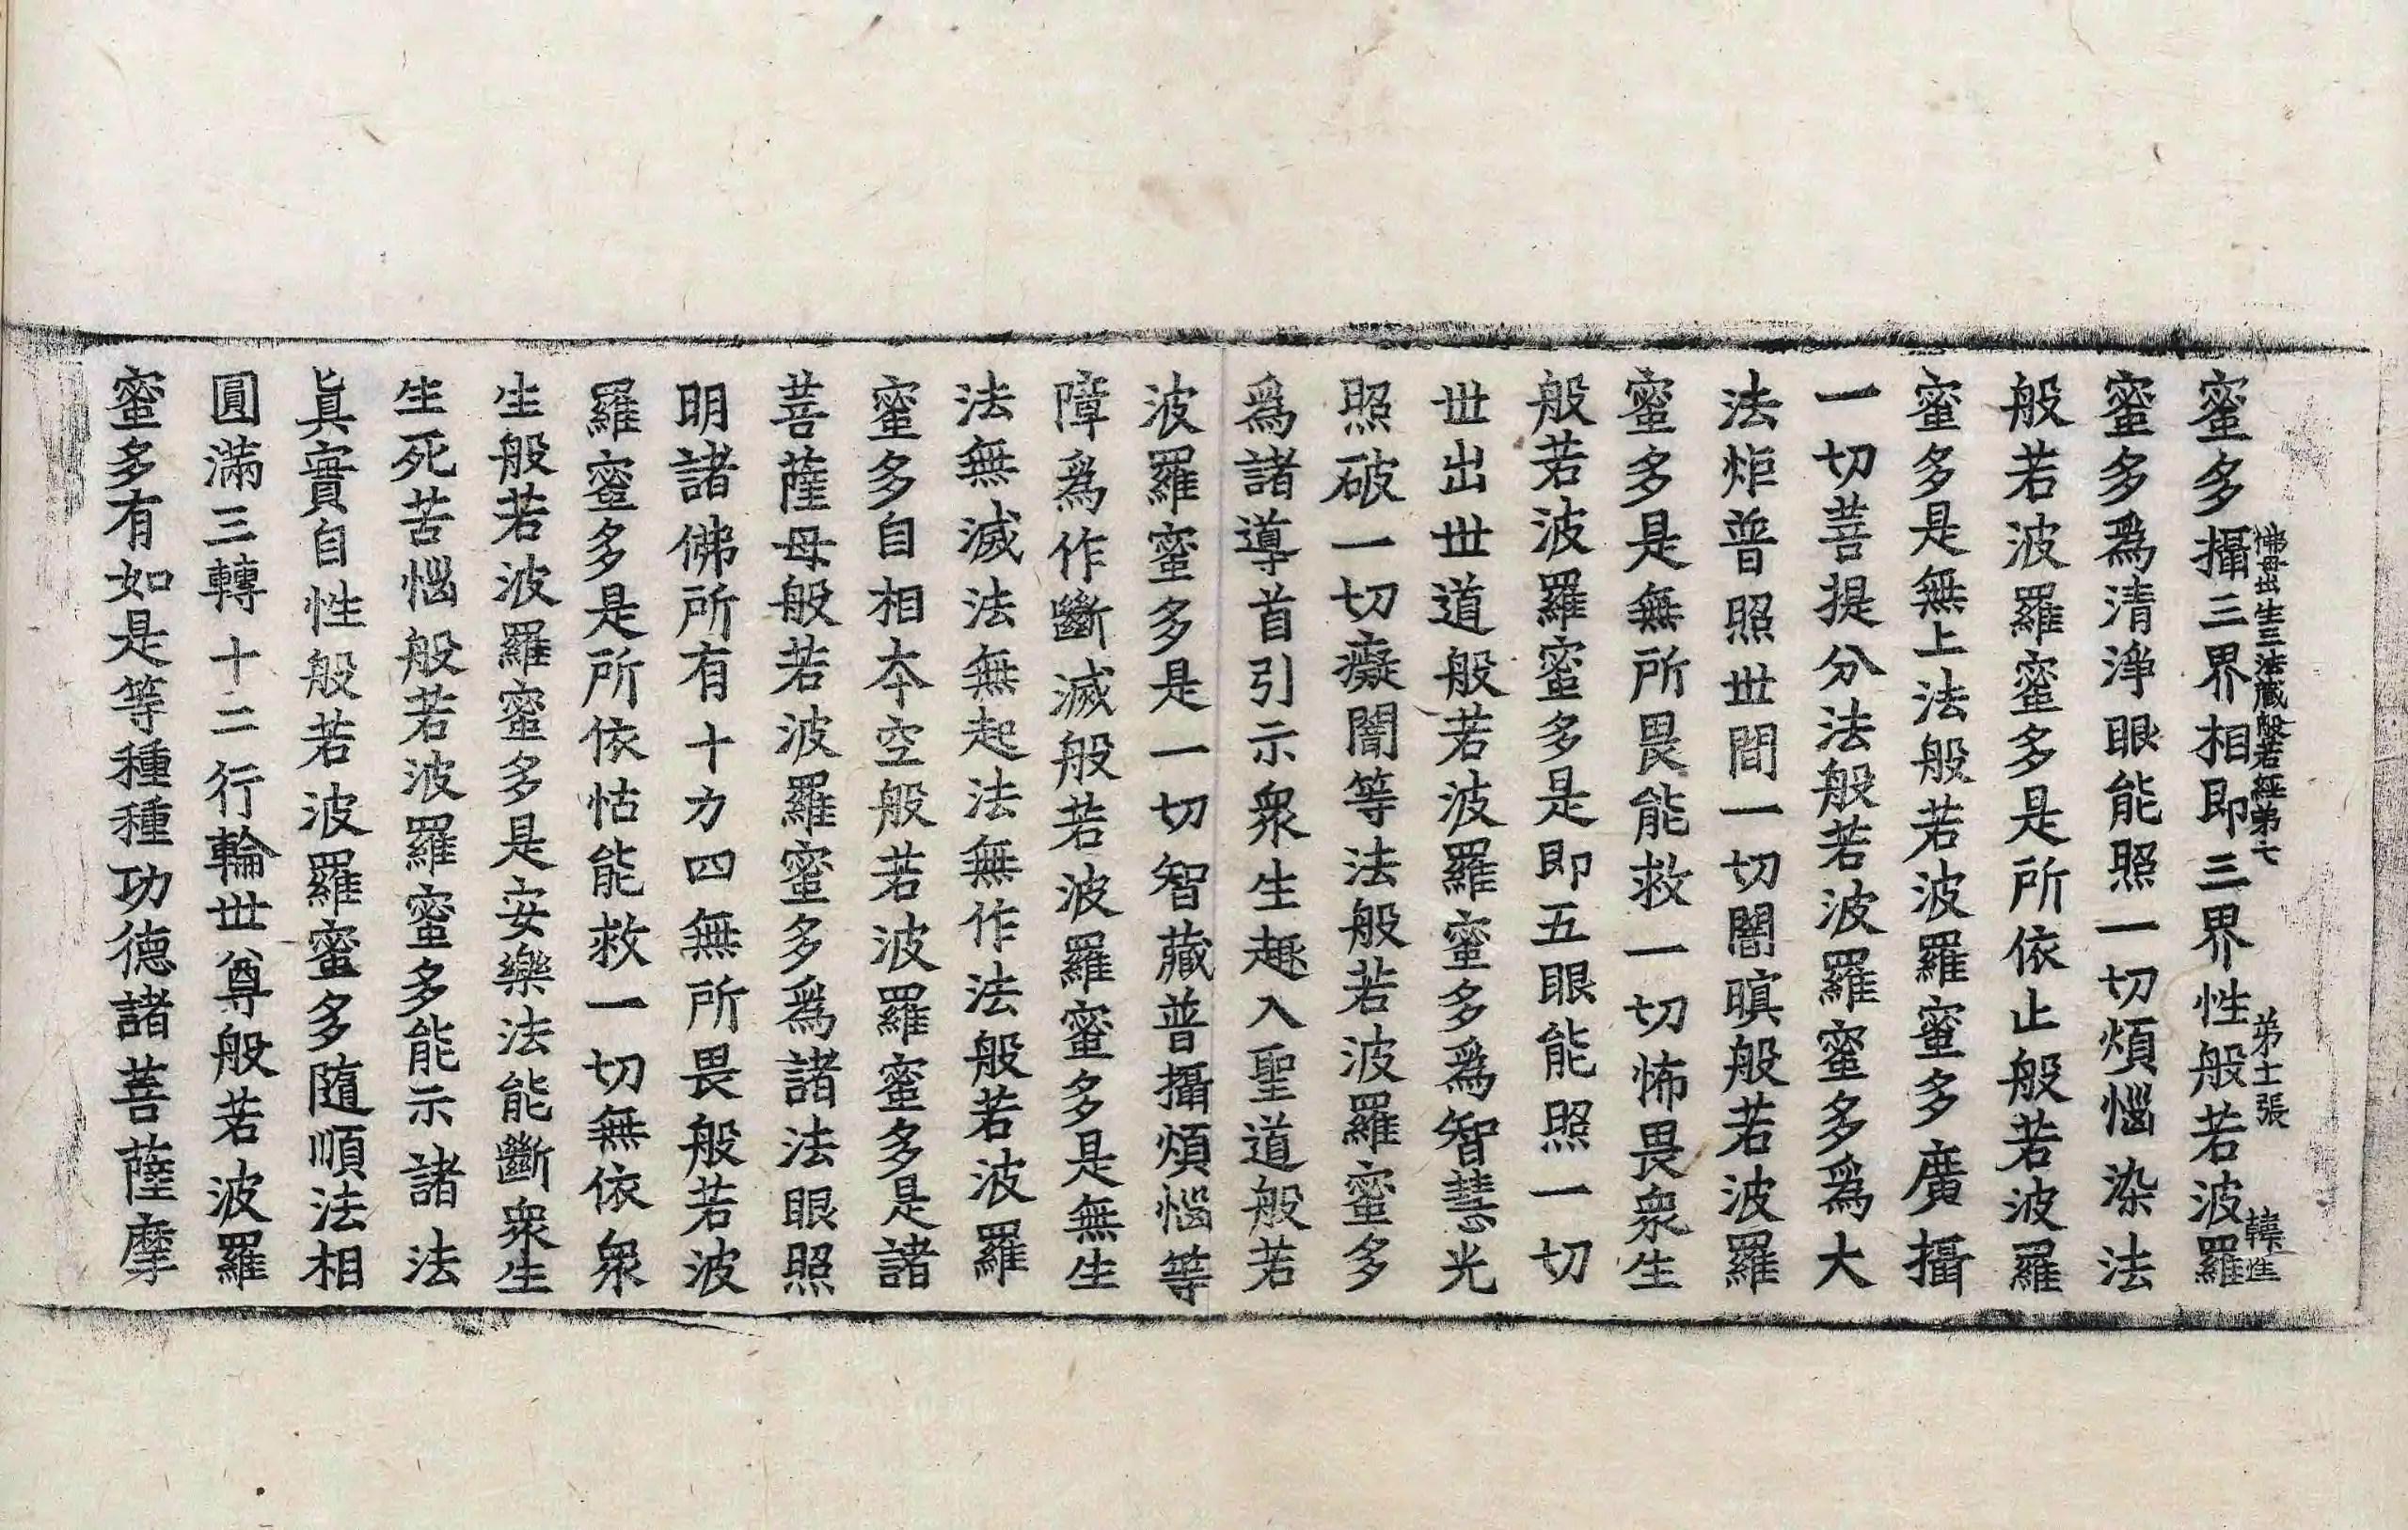 佛母出生三法藏般若經第七 第十張 韓進
蜜多攝三界相即三界性般若波羅
蜜多爲清淨眼能照一切煩惱染法
般若波羅蜜多是所依止般若波羅
蜜多是無上法般若波羅蜜多廣攝
一切菩提分法般若波羅蜜多爲大
法炬普照世間一切闇暝般若波羅
蜜多是無所畏能救一切怖畏衆生
般若波羅蜜多是即五眼能照一切
世出世道般若波羅蜜多爲智慧光
照破一切癡闇等法般若波羅蜜多
爲諸導首引示衆生趣入聖道般若
波羅蜜多是一切智藏普攝煩惱等
障爲作斷滅般若波羅蜜多是無生
法無滅法無起法無作法般若波羅
蜜多自相本空般若波羅蜜多是諸
菩薩母般若波羅蜜多爲諸法眼照
明諸佛所有十力四無所畏般若波
羅蜜多是所依怙能救一切無依衆
生般若波羅蜜多是安樂法能斷衆生
生死苦惱般若波羅蜜多能示諸法
眞實自性般若波羅蜜多隨順法相
圓滿三轉十二行輪世尊般若波羅
蜜多有如是等種種功德諸菩薩摩